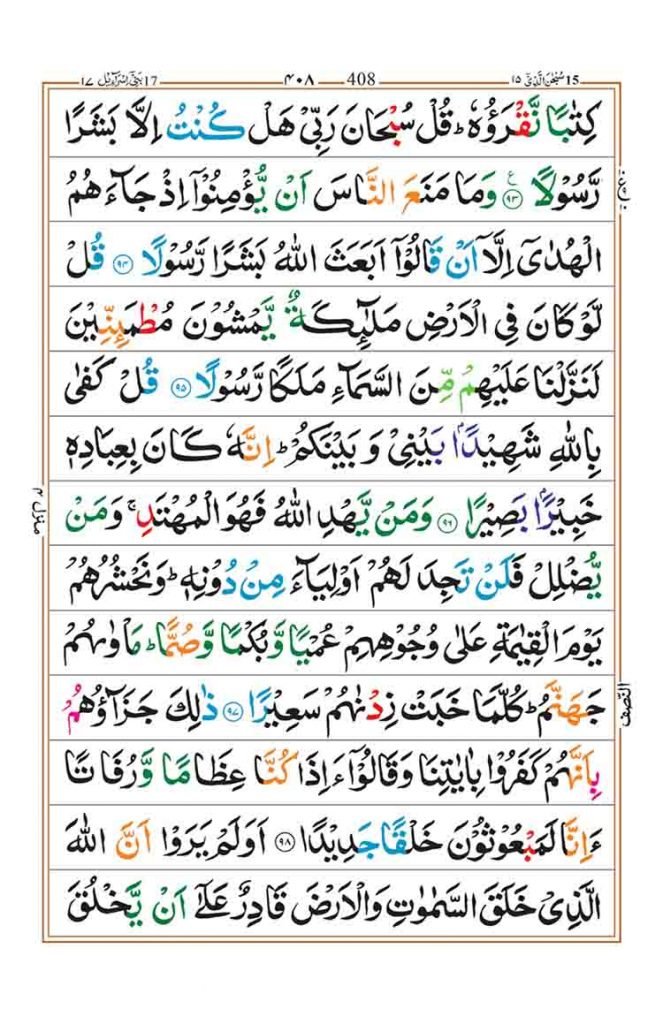 سُبْحٰنَ الَّذِیْۤ ١٥ 15 408 ٤٠٨ بَنِیْۤ اِسْرَآءِیْل ١٧ 17
كِتٰبًا نَّقْرَؤُهٗ ؕ قُلْ سُبْحَانَ رَبِّیْ هَلْ كُنْتُ اِلَّا بَشَرًا
رَّسُوْلًا ﴿۹۳﴾ ع وَمَا مَنَعَ النَّاسَ اَنْ یُّؤْمِنُوْۤا اِذْ جَآءَهُمُ
الْهُدٰۤی اِلَّاۤ اَنْ قَالُوْۤا اَبَعَثَ اللّٰهُ بَشَرًا رَّسُوْلًا ﴿۹۴﴾ قُلْ
لَّوْ كَانَ فِی الْاَرْضِ مَلٰٓئِكَةٌ یَّمْشُوْنَ مُطْمَئِنِّیْنَ
لَنَزَّلْنَا عَلَیْهِمْ مِّنَ السَّمَآءِ مَلَكًا رَّسُوْلًا ﴿۹۵﴾ قُلْ كَفٰی
بِاللّٰهِ شَهِیْدًۢا بَیْنِیْ وَ بَیْنَكُمْ ؕ اِنَّهٗ كَانَ بِعِبَادِهٖ
خَبِیْرًۢا بَصِیْرًا ﴿۹۶﴾ وَمَنْ یَّهْدِ اللّٰهُ فَهُوَ الْمُهْتَدِ ۚ وَمَنْ
یُّضْلِلْ فَلَنْ تَجِدَ لَهُمْ اَوْلِیَآءَ مِنْ دُوْنِهٖ ؕ وَنَحْشُرُهُمْ
یَوْمَ الْقِیٰمَةِ عَلٰی وُجُوْهِهِمْ عُمْیًا وَّبُكْمًا وَّصُمًّا ؕ مَاْوٰىهُمْ
جَهَنَّمُ ؕ كُلَّمَا خَبَتْ زِدْنٰهُمْ سَعِیْرًا ﴿۹۷﴾ ذٰلِكَ جَزَآؤُهُمْ
بِاَنَّهُمْ كَفَرُوْا بِاٰیٰتِنَا وَقَالُوْۤا ءَاِذَا كُنَّا عِظَامًا وَّرُفَاتًا
ءَاِنَّا لَمَبْعُوْثُوْنَ خَلْقًا جَدِیْدًا ﴿۹۸﴾ اَوَلَمْ یَرَوْا اَنَّ اللّٰهَ
الَّذِیْ خَلَقَ السَّمٰوٰتِ وَالْاَرْضَ قَادِرٌ عَلٰۤی اَنْ یَّخْلُقَ
منزل ٤
النصف